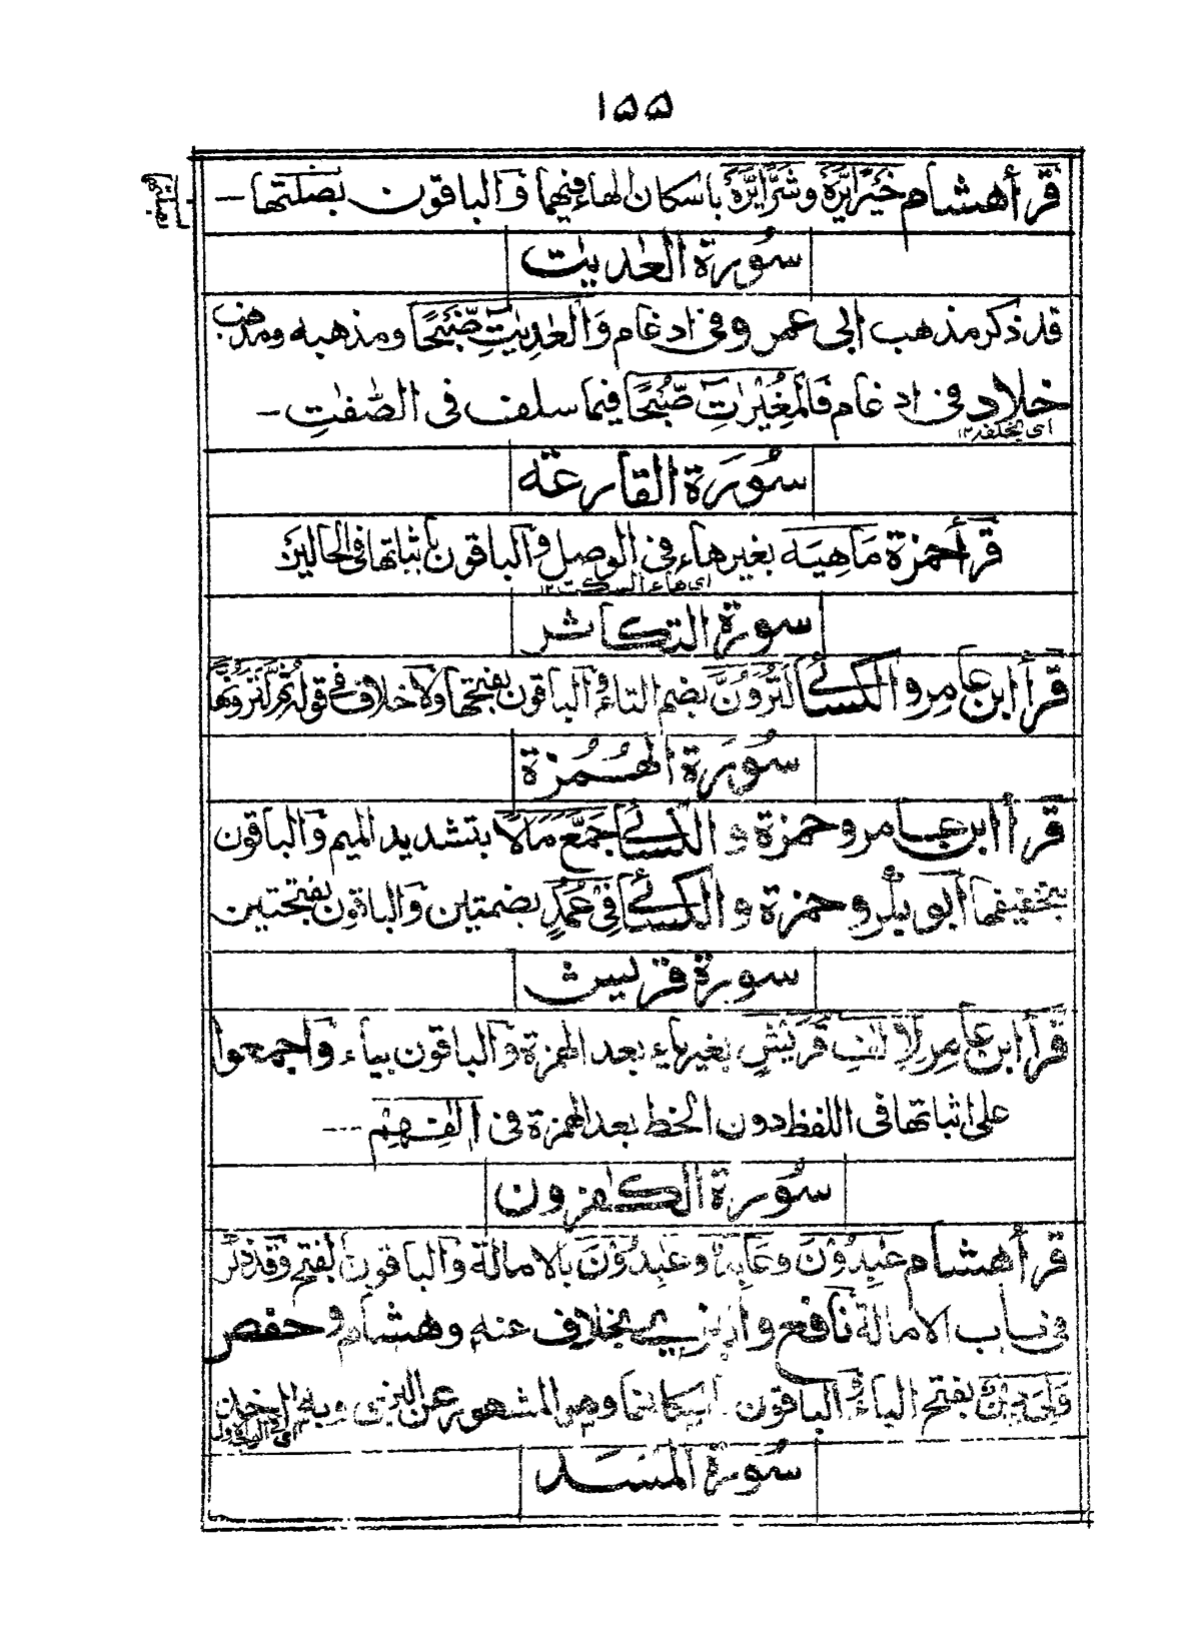 ۱۵۵
قَرَأَ هشام خَيْرًا يَّرَهٗ وشَرًّا يَّرَهٗ باسكان الهاء فيهما وَالباقون بصلتها ـ
سُورة العٰديٰت
قد ذكر مذهب ابى عمرو فى ادغام وَالْعٰدِيٰتِ ضَّبْحًا ومذهبه ومذهب
خلاد فى ادغام فَالْمُغِيْرٰتِ صُّبْحًا فيما سلف فى الصّٰفٰتِ ـ
اى بخلفه ۱۲
سُورَة القارعة
قَرَأَ حمزة مَاهِيَه بغير هاء فى الوصل وَالباقون باثباتها فى الحالين
اى هاء السكت ۱۲
سورة التكاثر
قَرَأَ ابن عامر والكسائى لَتُرَوُنَّ بضم التاء وَالباقون بفتحها ولا خلاف فى قوله ثُمَّ لَتَرَوُنَّهَا
سُورَة الهُمُزة
قَرَأَ ابن عامر وحمزة والكسائى جَمَّعَ مَالًا بتشديد الميم وَالباقون
بتخفيفها ابو بكر وحمزة والكسائى فِىْ عُمُدٍ بضمتين وَالباقون بفتحتين
سورة قريش
قَرَأَ ابن عامر لِاِلٰفِ قُرَيْشٍ بغير ياء بعد الهمزة وَالباقون بياء وَاجمعوا
على اثباتها فى اللفظ دون الخط بعد الهمزة فى اٖلٰفِهِمْ ---
سُورة الكٰفرون
قَرَأَ هشام عٰبِدُوْنَ وعَابِدٌ وعٰبِدُوْنَ بالامالة وَالباقون بالفتح وَقد ذكر
فى باب الامالة نَافع والبزى بخلاف عنه وهشام وحفص
وَلِىَ دِيْنِ بفتح الياء وَالباقون باسكانها وهو المشهور عن البزى وبه
سُورة المَسَد